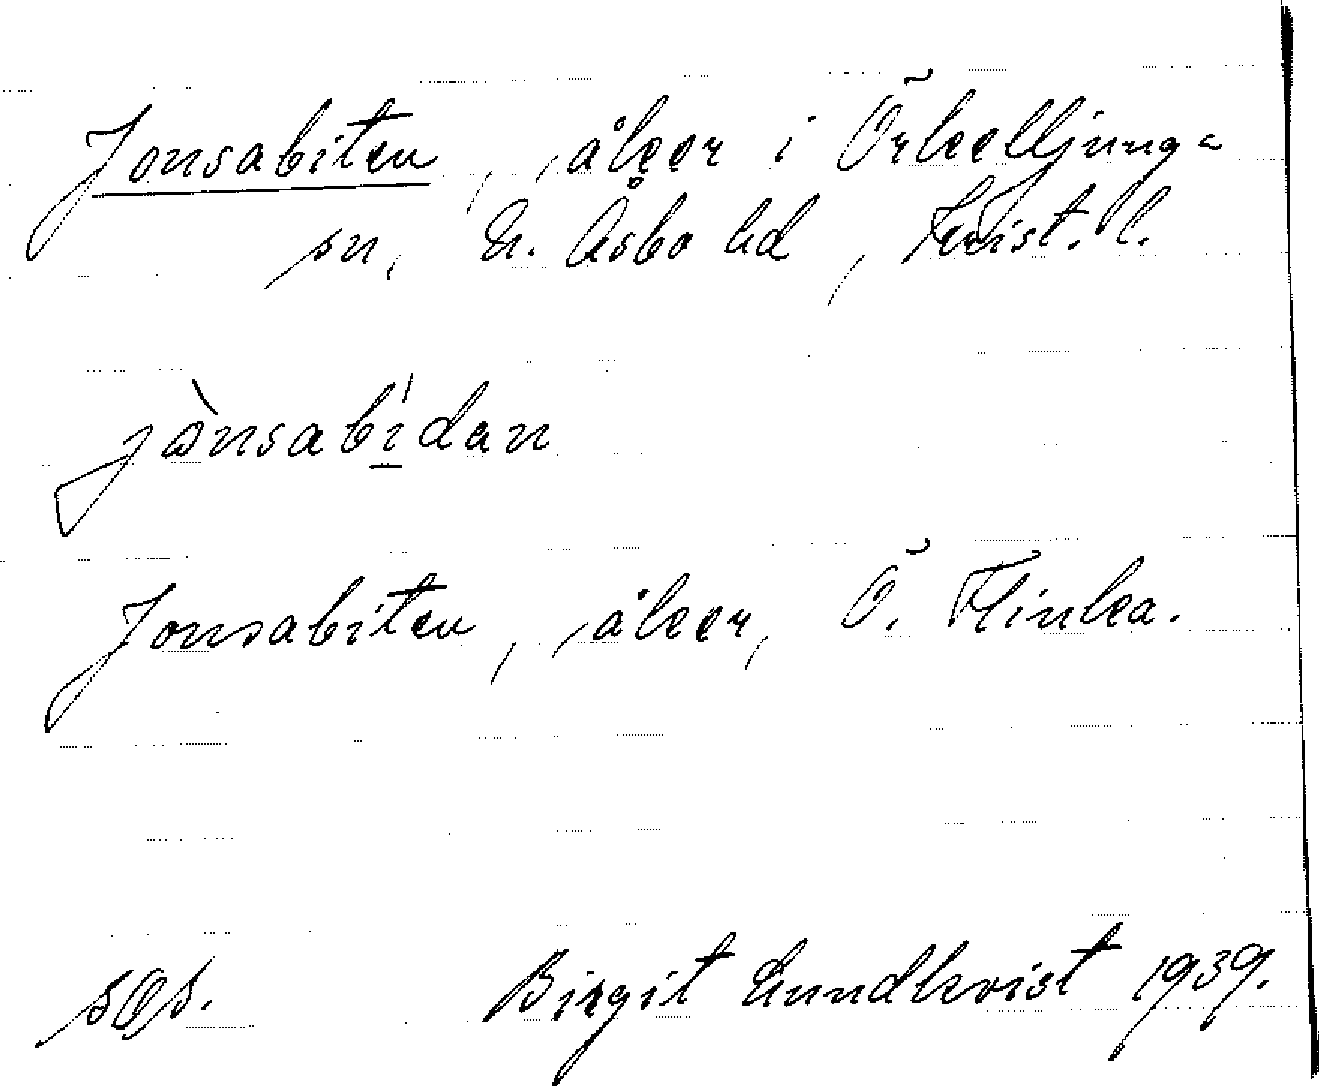 Jonsabiten, åker i Örkelljunga
sn, N. Åsbo hd, Krist. l.
jònsabí̲dan
Jonsabiten, åker, Ö. Flinka.
Birgit Lundkvist 1939.